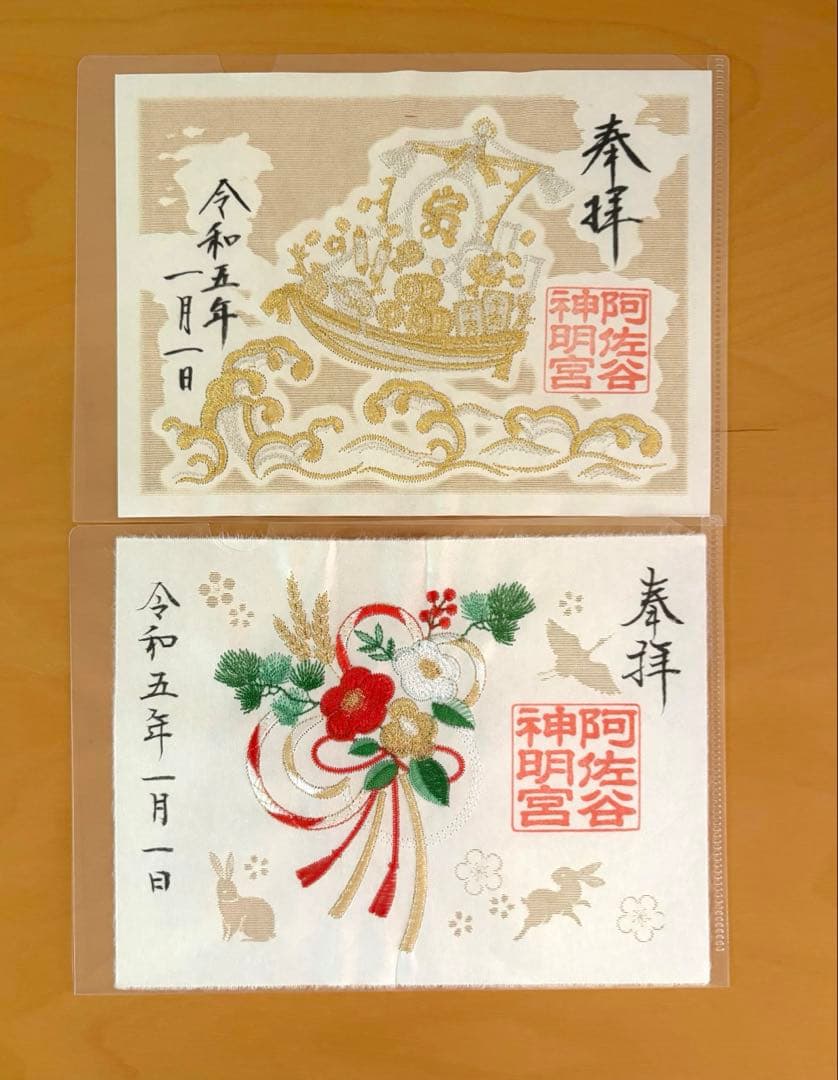 奉拝
阿佐谷
神明宮
令和五年
一月一日
奉拝
阿佐谷
神明宮
令和五年一月一日